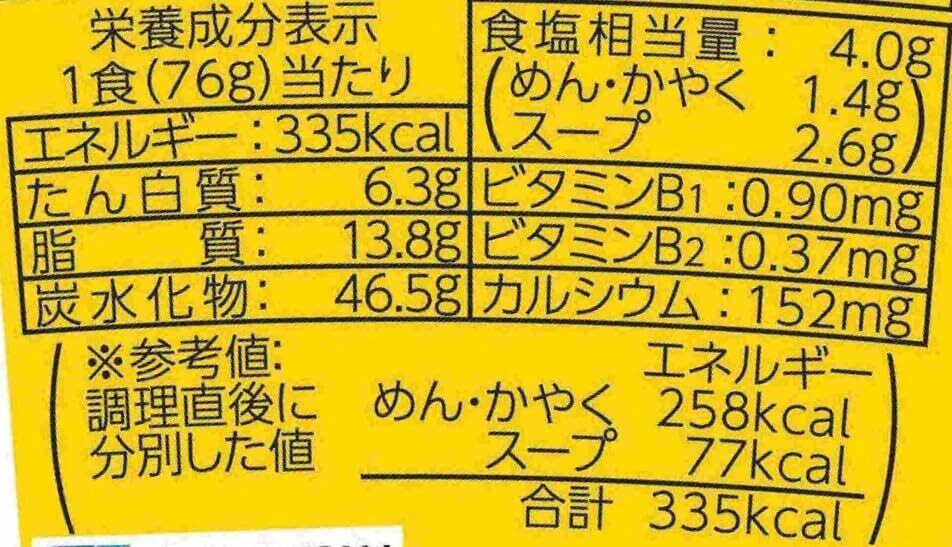 栄養成分表示
1食(76g)当たり
エネルギー:335kcal
たん白質: 6.3g
脂質: 13.8g
炭水化物: 46.5g
食塩相当量: 4.0g
(めん・かやく 1.4g
スープ 2.6g)
ビタミンB1:0.90mg
ビタミンB2:0.37mg
カルシウム:152mg
(※参考値:
調理直後に
分別した値
エネルギー
めん・かやく 258kcal
スープ 77kcal
合計 335kcal)